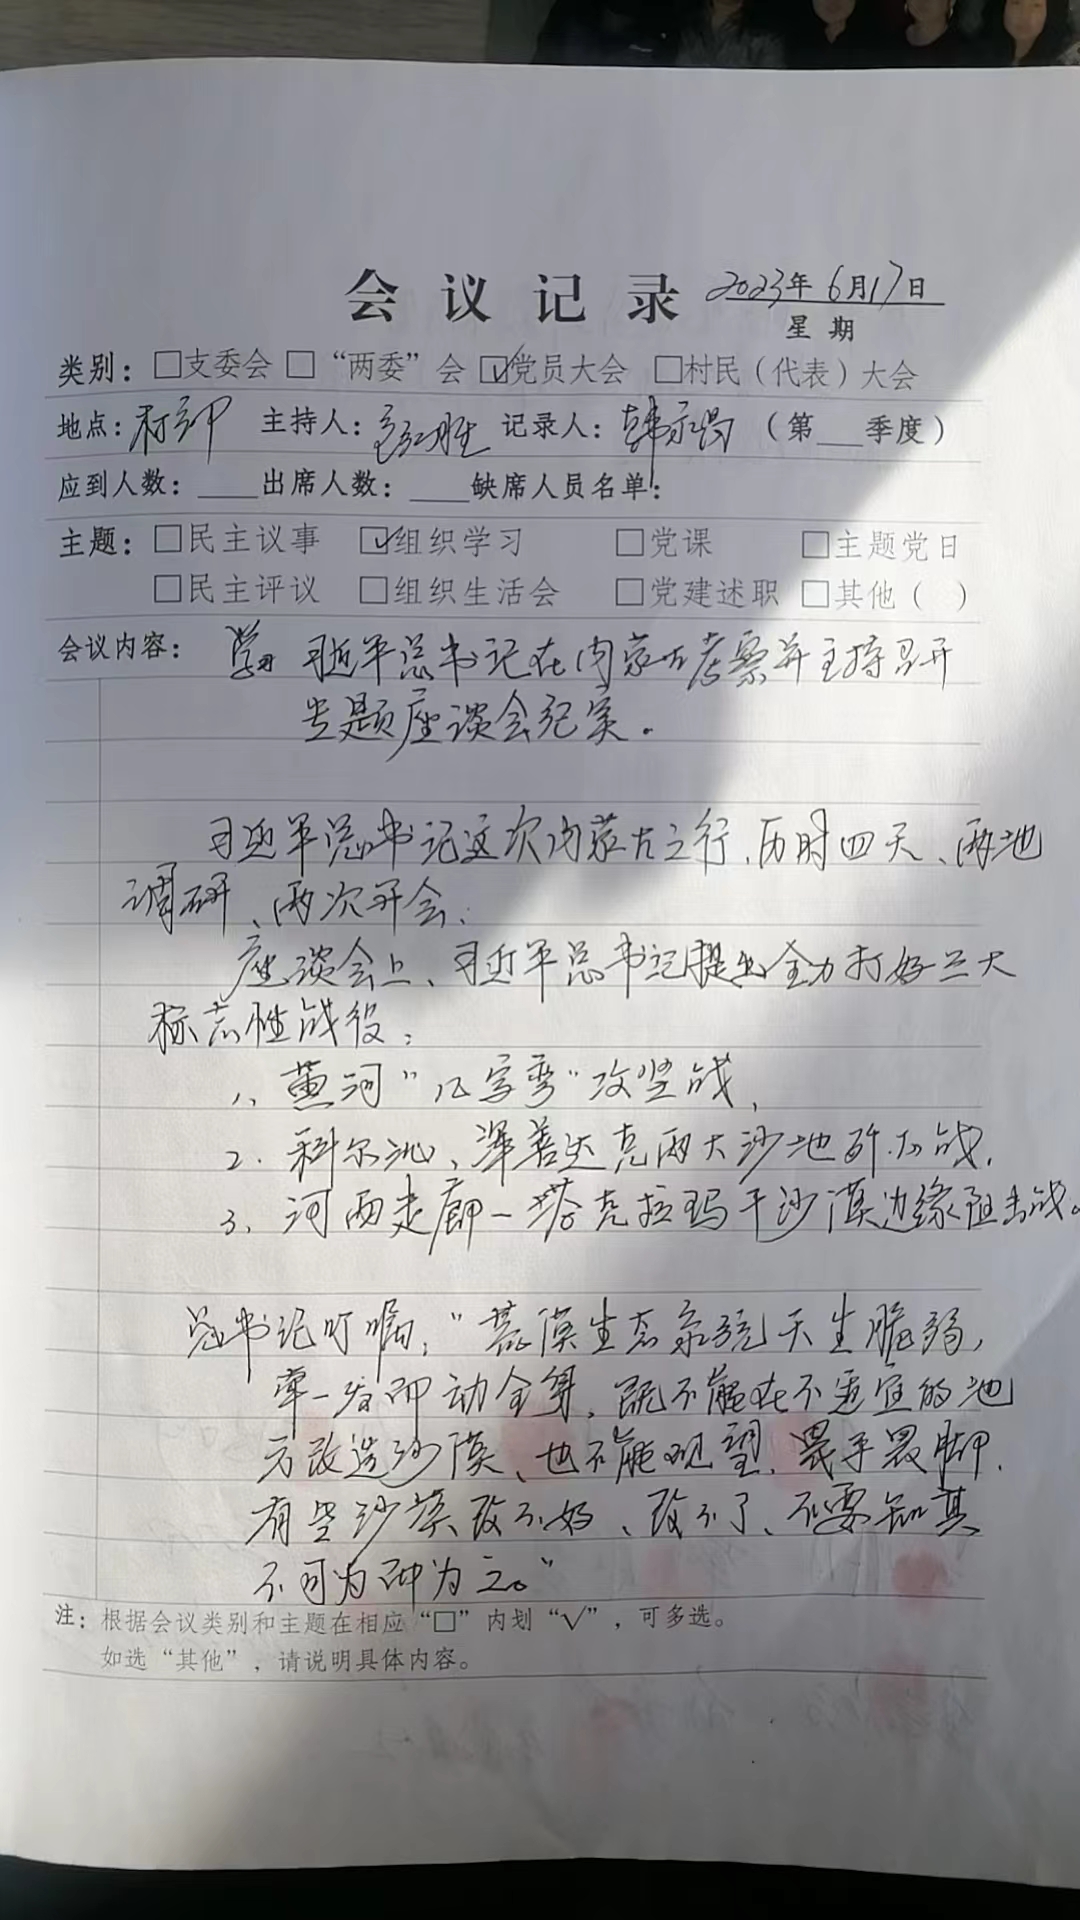 会议记录 2023年6月17日
星期
类别：□支委会 □“两委”会 ☑党员大会 □村民（代表）大会
地点：村部 主持人： 记录人：韩永 （第___季度）
应到人数：____出席人数：____缺席人员名单：
主题：□民主议事 ☑组织学习 □党课 □主题党日
□民主评议 □组织生活会 □党建述职 □其他（ ）
会议内容： 学习习近平总书记在内蒙古考察并主持召开
专题座谈会纪实。
习近平总书记这次内蒙古之行、历时四天、两地
调研、两次开会.
座谈会上、习近平总书记提出全力打好三大
标志性战役：
1、黄河“几字弯”攻坚战、
2. 科尔沁、浑善达克两大沙地歼灭战.
3、河西走廊一塔克拉玛干沙漠边缘阻击战。
总书记叮嘱：“荒漠生态系统天生脆弱，
牵一发而动全身，既不能在不适宜的地
方改造沙漠、也不能观望、畏手畏脚.
有些沙漠改不好、改不了、不要知其
不可为而为之。”
注：根据会议类别和主题在相应“□”内划“√”，可多选。
如选“其他”，请说明具体内容。